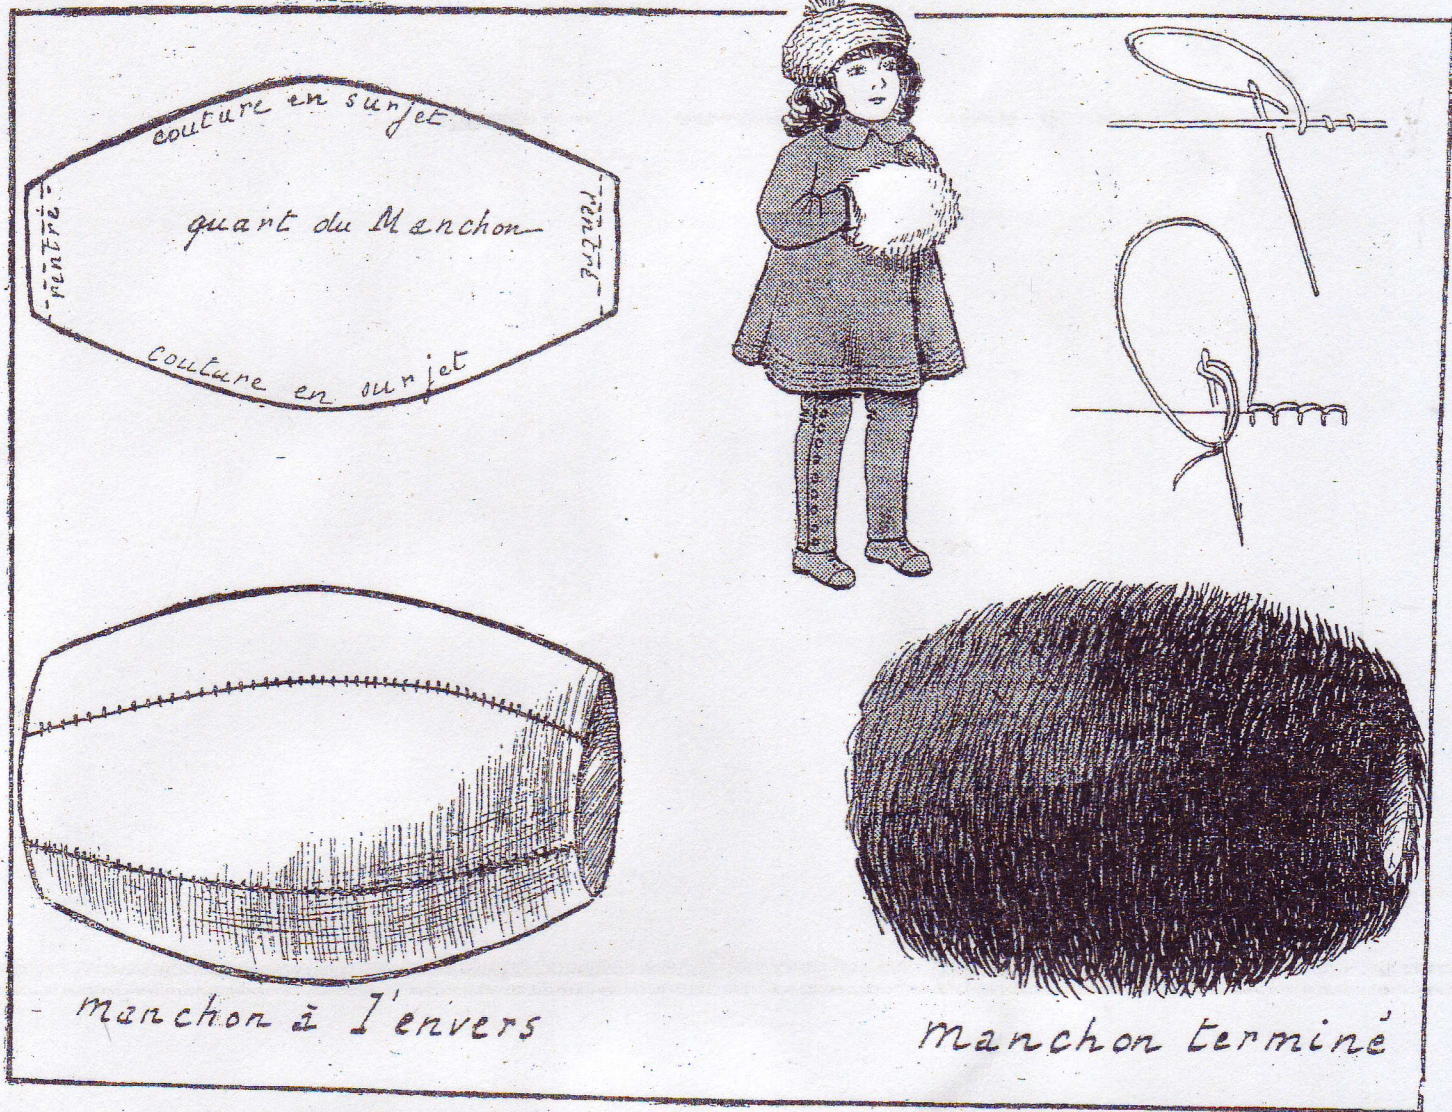 couture en surjet
rentré
quart du Manchon
rentré
couture en surjet
manchon à l'envers
manchon terminé